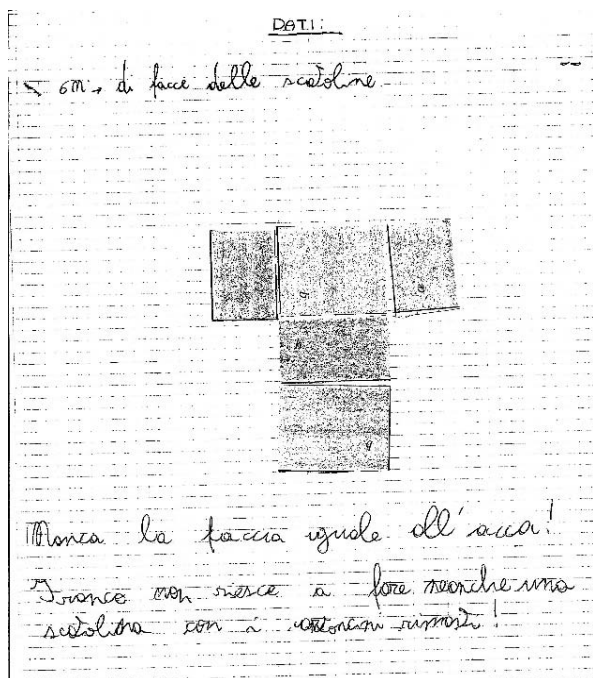 DATI:
6 n. di facce delle scatoline
g
a
h
g
Manca la faccia uguale all'acca!
Franco non riesce a fare neanche una
scatolina con i cartoncini rimasti!